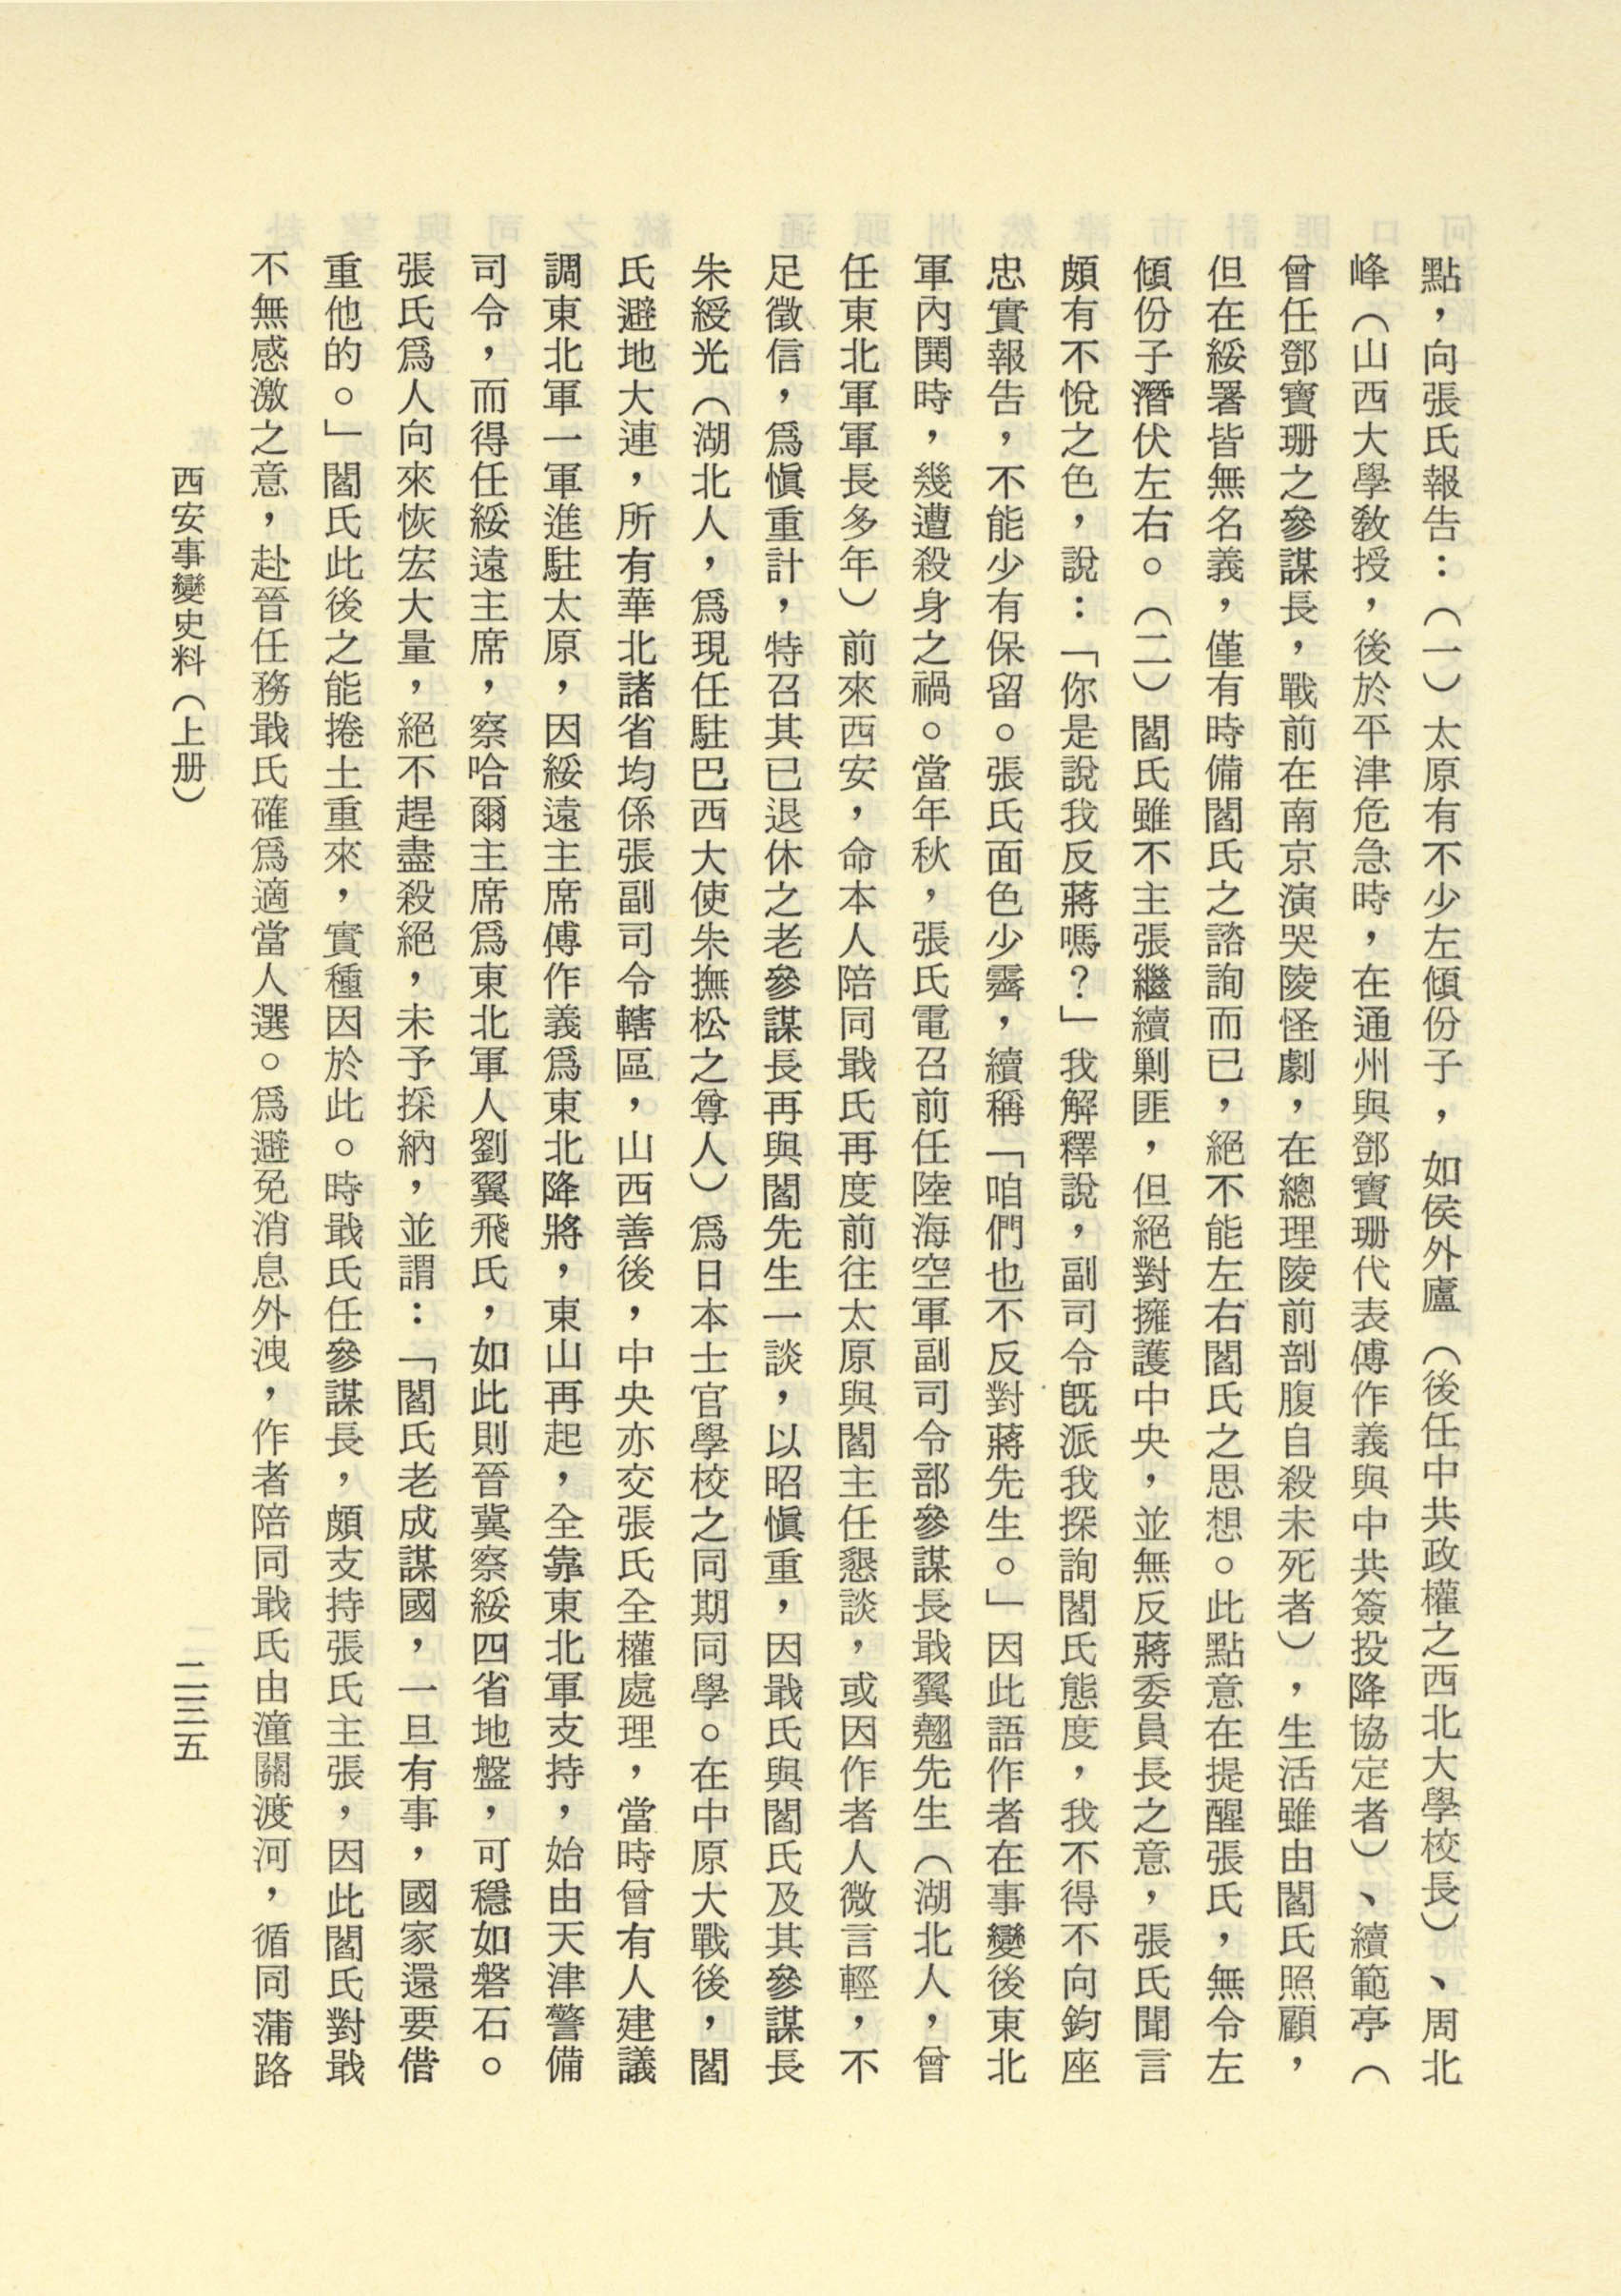 點，向張氏報告：（一）太原有不少左傾份子，如侯外廬（後任中共政權之西北大學校長）、周北
峰（山西大學敎授，後於平津危急時，在通州與鄧寶珊代表傅作義與中共簽投降協定者）、續範亭（
曾任鄧寶珊之參謀長，戰前在南京演哭陵怪劇，在總理陵前剖腹自殺未死者），生活雖由閻氏照顧，
但在綏署皆無名義，僅有時備閻氏之諮詢而已，絕不能左右閻氏之思想。此點意在提醒張氏，無令左
傾份子潛伏左右。（二）閻氏雖不主張繼續剿匪，但絕對擁護中央，並無反蔣委員長之意，張氏聞言
頗有不悅之色，說：「你是說我反蔣嗎？」我解釋說，副司令旣派我探詢閻氏態度，我不得不向鈞座
忠實報告，不能少有保留。張氏面色少霽，續稱「咱們也不反對蔣先生。」因此語作者在事變後東北
軍內鬨時，幾遭殺身之禍。當年秋，張氏電召前任陸海空軍副司令部參謀長戢翼翹先生（湖北人，曾
任東北軍軍長多年）前來西安，命本人陪同戢氏再度前往太原與閻主任懇談，或因作者人微言輕，不
足徵信，爲愼重計，特召其已退休之老參謀長再與閻先生一談，以昭愼重，因戢氏與閻氏及其參謀長
朱綬光（湖北人，爲現任駐巴西大使朱撫松之尊人）爲日本士官學校之同期同學。在中原大戰後，閻
氏避地大連，所有華北諸省均係張副司令轄區，山西善後，中央亦交張氏全權處理，當時曾有人建議
調東北軍一軍進駐太原，因綏遠主席傅作義爲東北降將，東山再起，全靠東北軍支持，始由天津警備
司令，而得任綏遠主席，察哈爾主席爲東北軍人劉翼飛氏，如此則晉冀察綏四省地盤，可穩如磐石。
張氏爲人向來恢宏大量，絕不趕盡殺絕，未予採納，並謂：「閻氏老成謀國，一旦有事，國家還要借
重他的。」閻氏此後之能捲土重來，實種因於此。時戢氏任參謀長，頗支持張氏主張，因此閻氏對戢
不無感激之意，赴晉任務戢氏確爲適當人選。爲避免消息外洩，作者陪同戢氏由潼關渡河，循同蒲路
西安事變史料（上册）
二三五